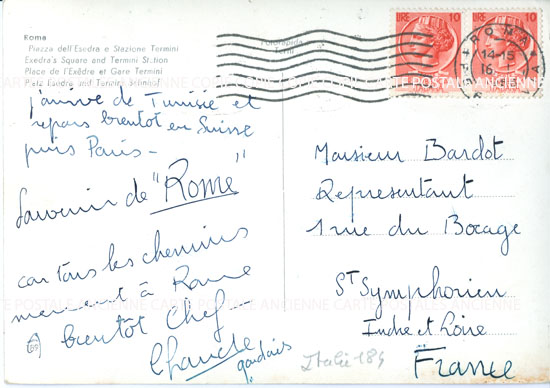 Roma
Piazza dell'Esedra e Stazione Termini
Exedra's Square and Termini Station
Place de l'Exèdre et Gare Termini
Platz Esedra und Termini Bahnhof
Fotorapida
Terni
LIRE 10
LIRE 10
ROMA
14-15
16
j'arrive de Tunisie et
repars bientôt en Suisse
puis Paris -
Souvenir de "Rome"
car tous les chemins
mènent à Rome
à bientôt Chef -
Monsieur Bardot
Représentant
1 rue du Bocage
St Symphorien
Indre et Loire
France
Italie 184
CARTE POSTALE ANCIENNE
CARTE POSTALE ANCIENNE CARTE POSTALES ANCIENNE